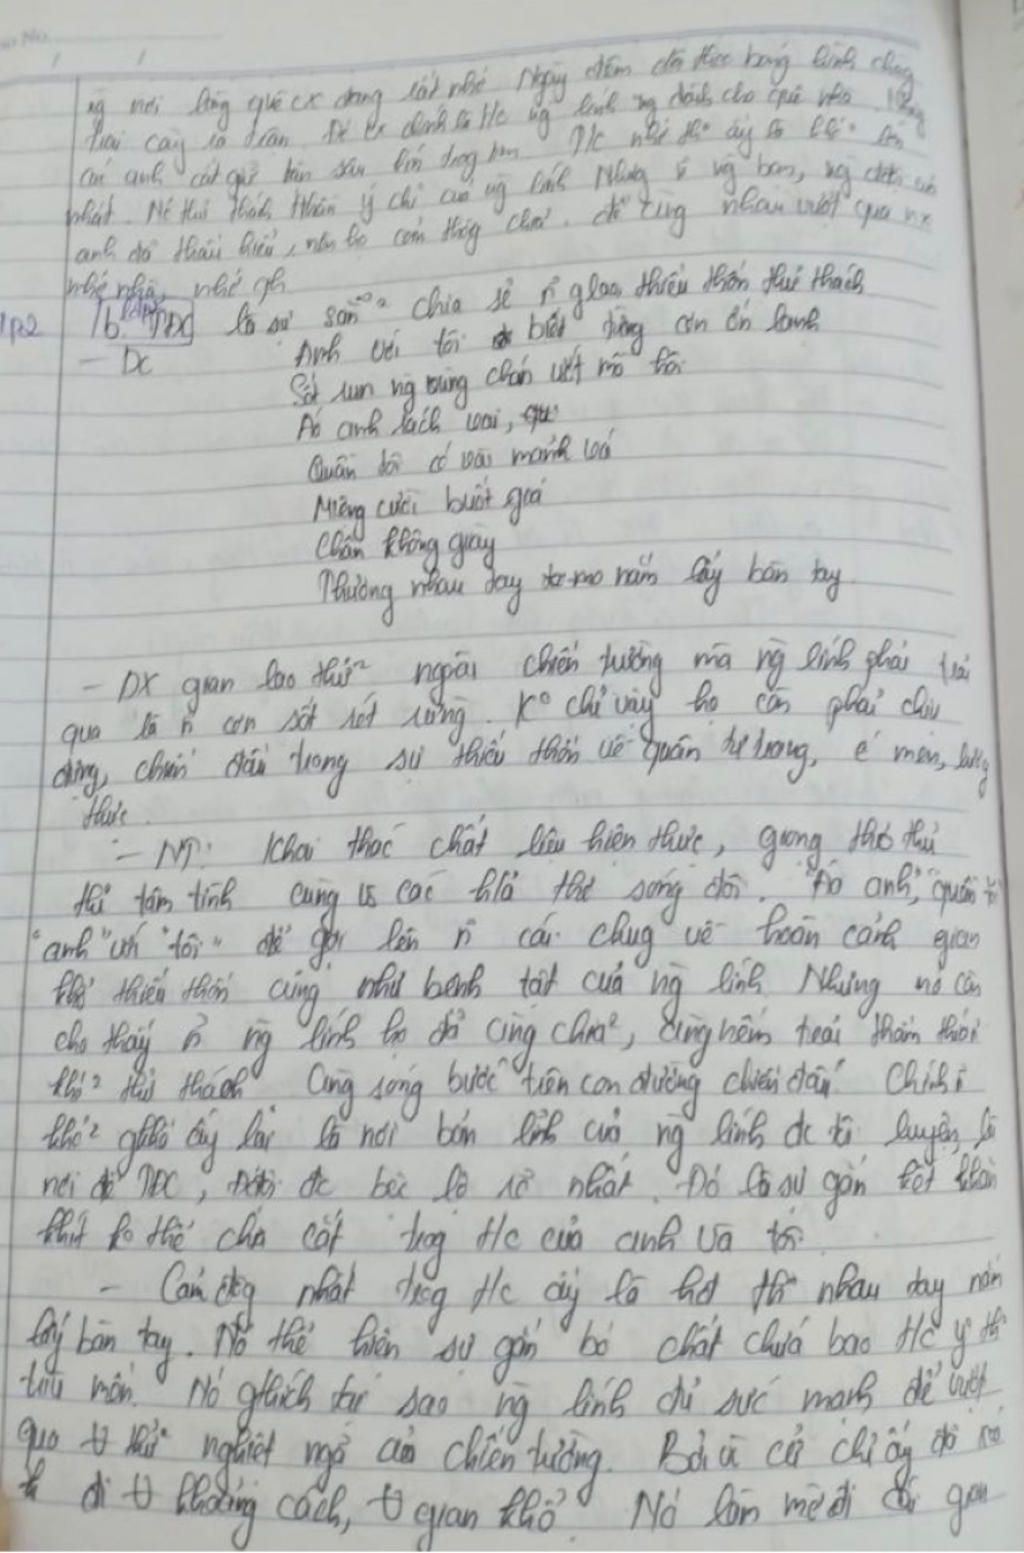 ng nơi làng quê cx đang rất nhớ Ngày đêm dõi theo bóng hình chàng
trai cày ra trận. là t/c ng lính ng dành cho quê nhà
các anh cất giữ trong tim T/c nhớ
nhất. Nó thử thách thêm ý chí của ng lính Nhưng vì ng bạn, ng
anh đã thấu hiểu, nên họ cảm thông chia². để cùng nhau vượt qua
nhớ nhà, nhớ gđ
1p2 /b. TĐC là sự sẵn² chia sẻ ~n glao, thiếu thốn thử thách
- Dc Anh với tôi biết từng cơn ớn lạnh
Sốt run ng vừng chán ướt mồ hôi
Áo anh rách vai,
Quần tôi có vài mảnh vá
Miệng cười buốt giá
Chân không giày
Thương nhau tay nắm lấy bàn tay
- DX gian lao thử² ngoài chiến trường mà ng lính phải trải
qua là ~n cơn sốt rét rừng. Kº chỉ vậy họ còn phải chịu
đựng, chiến đấu trong sự thiếu thốn về quân tư trang, men, lương
thực.
- NT: Khai thác chất liệu hiện thực, giọng thơ thủ
thỉ tâm tình cùng vs các h/ả thơ sóng đôi. "Áo anh", "quần tôi
"anh" với "tôi" để gợi lên ~n cái chug về hoàn cảnh gian
khổ thiếu thốn cũng như bệnh tật của ng lính Nhưng nó còn
cho thấy ~n ng lính họ đã cùng chia², cùng nếm trải thấm thía
khó² thử thách Cùng sóng bước trên con đường chiến đấu. Chính ~n
khó² gkhổ ấy lại là nơi bản lĩnh của ng lính đc tôi luyện, là
nơi để TĐC, đc bộc lộ rõ nhất. Đó là sự gắn kết khăn
khít ko thể chia cắt trog t/c của anh và tôi
- Cảm động nhất trog t/c ấy là h/ả th nhau tay nắm
lấy bàn tay. Nó thể hiện sự gắn bó chất chứa bao t/c ý th
trìu mến. Nó gthích tại sao ng lính đủ sức mạnh để vượt
qua thử² nghiệt ngã của chiến trường. Bởi vì cử chỉ ấy đã
đi khoảng cách, gian khổ. Nó làm mờ đi cái gian